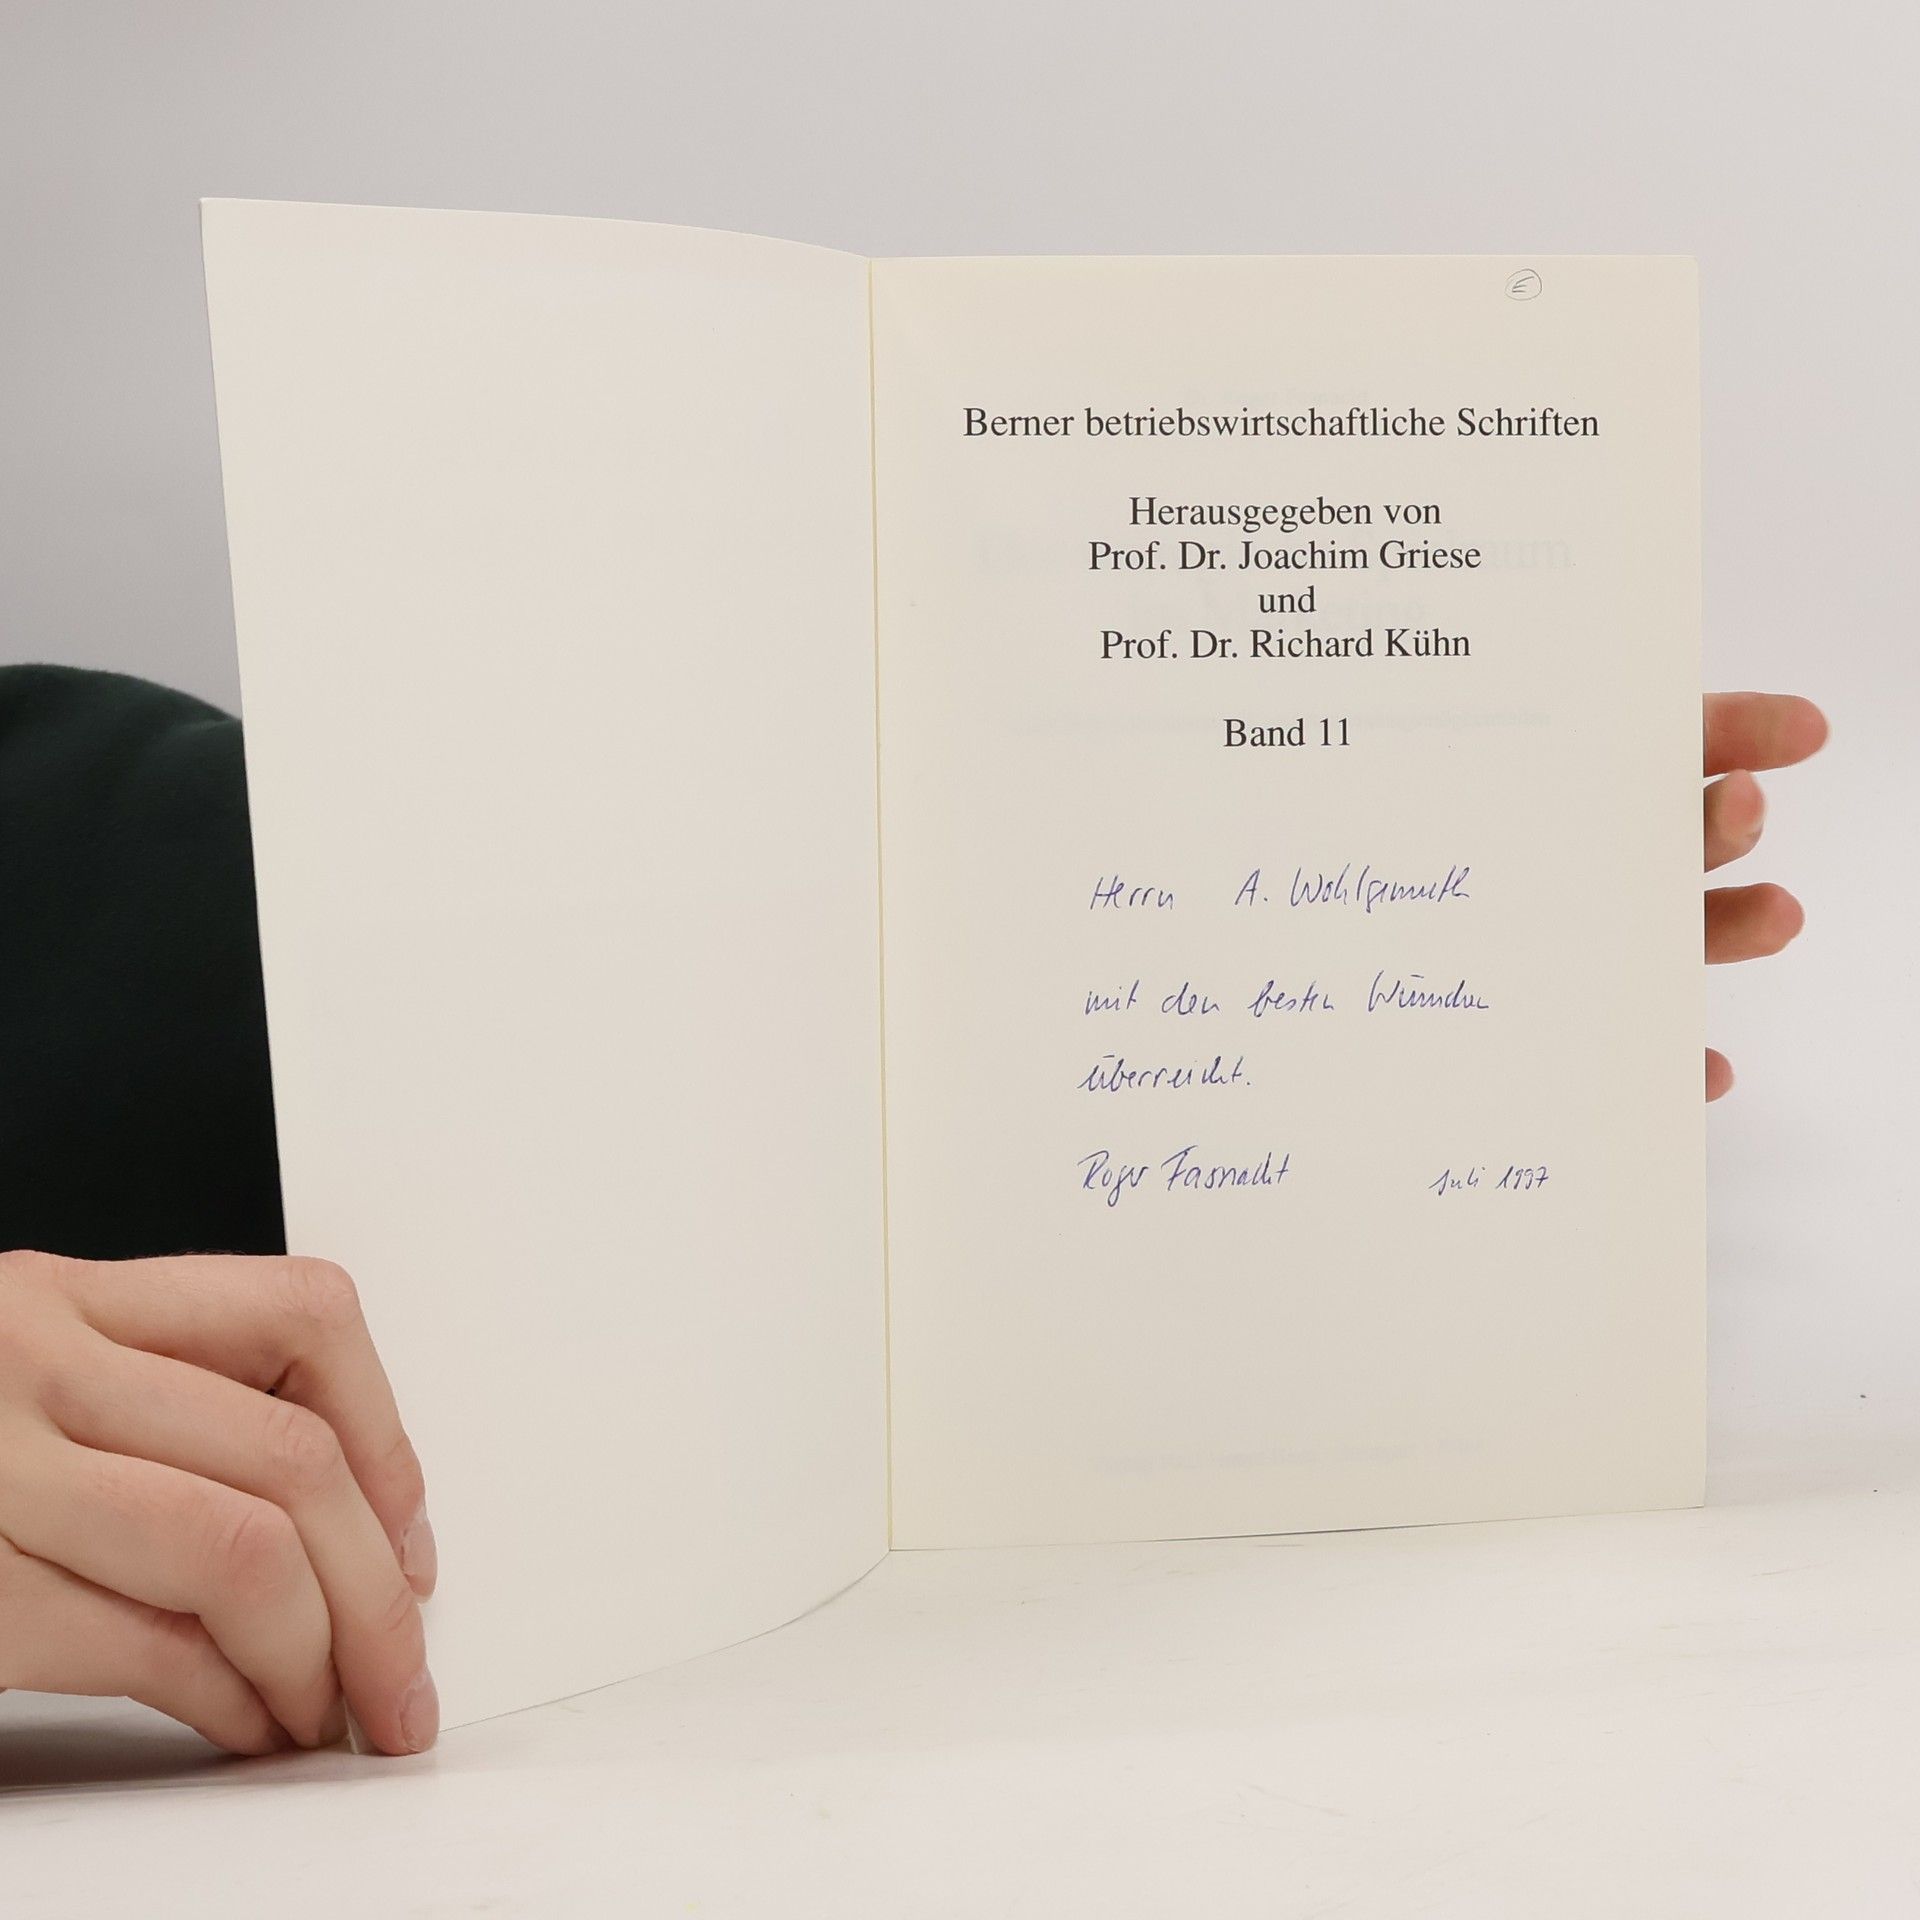 E
Berner betriebswirtschaftliche Schriften
Herausgegeben von
Prof. Dr. Joachim Griese
und
Prof. Dr. Richard Kühn
Band 11
Herrn A. Wohlgemuth
mit den besten Wünschen
überreicht.
Roger Fasnacht Juli 1997